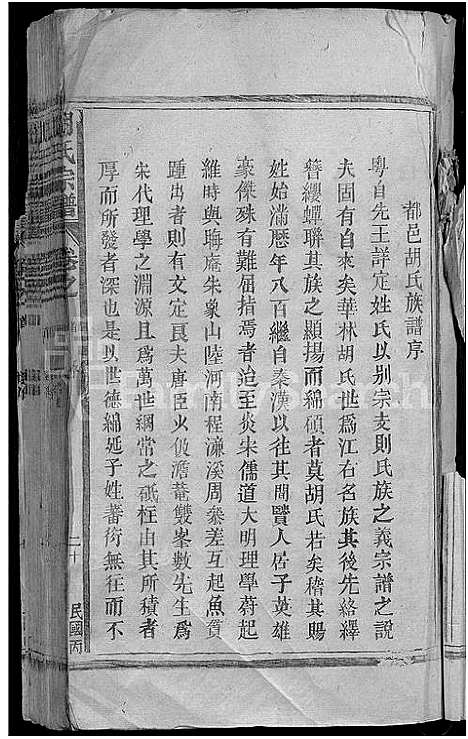 都邑胡氏族譜序
粵自先王詳定姓氏以别宗支則氏族之義宗譜之說
夫固有自來矣華林胡氏世爲江右名族其後先絡繹
簪纓蟬聯其族之顯揚而綿碩者莫胡氏若矣稽其賜
姓始滿歷年八百繼自秦漢以往其間賢人居子英雄
豪傑殊有難屈指焉者迨至炎宋儒道大明理學蔚起
維時與晦庵朱象山陸河南程濂溪周叅差互起魚貫
踵出者則有文定良夫唐臣火攸澹菴雙峯數先生爲
宋代理學之淵源且爲萬世綱常之砥柱由其所積者
厚而所發者深也是以世德綿延子姓蕃衍無往而不
胡氏宗譜
卷之
二十
民國丙